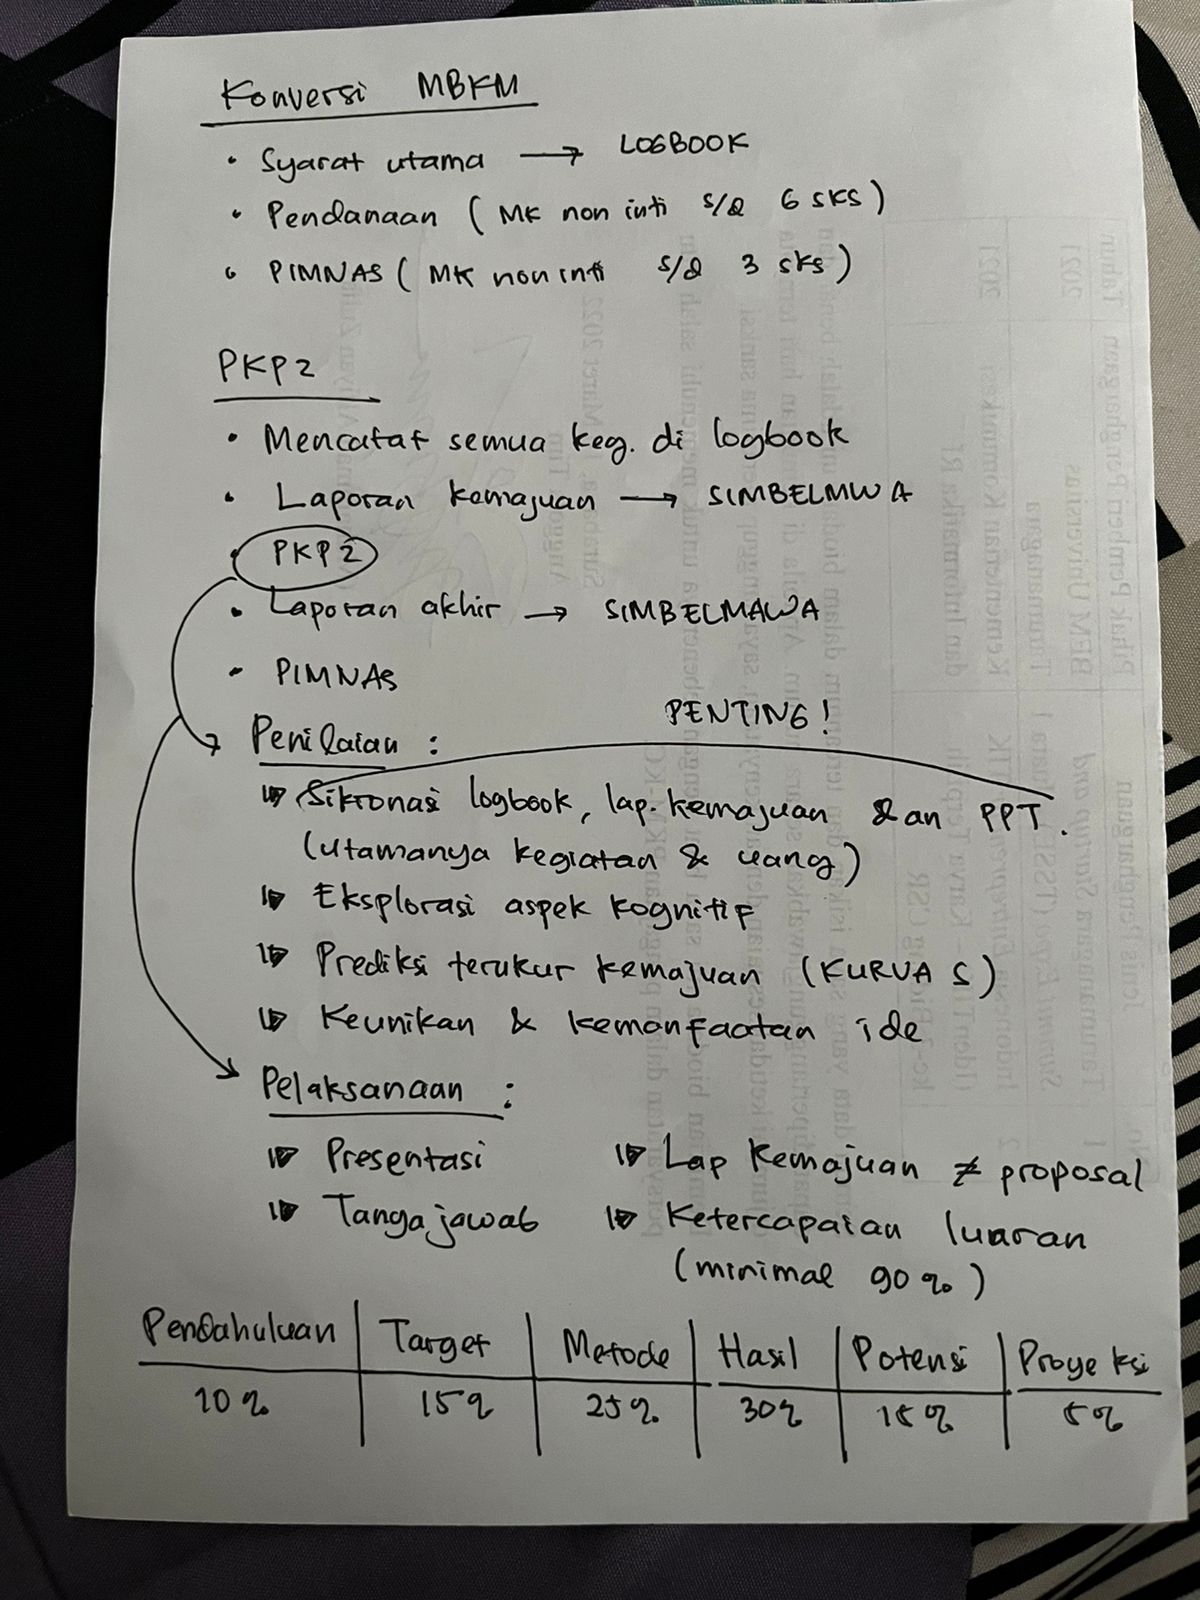 Konversi MBKM
• Syarat utama → LOGBOOK
• Pendanaan (MK non inti s/d 6 sks)
• PIMNAS (MK non inti s/d 3 sks)
PKP2
• Mencatat semua keg. di logbook
• Laporan kemajuan → SIMBELMWA
• PKP2
• Laporan akhir → SIMBELMAWA
• PIMNAS
PENTING!
Penilaian :
Sikronasi logbook, lap. kemajuan dan PPT.
(utamanya kegiatan & uang)
Eksplorasi aspek kognitif
Prediksi terukur kemajuan (KURVA S)
Keunikan & kemanfaatan ide
Pelaksanaan :
Presentasi
Tanga jawab
Lap Kemajuan ≠ proposal
Ketercapaian luaran
(minimal 90%)
Pendahuluan Target Metode Hasil Potensi Proyeksi
10% 15% 25% 30% 15% 5%